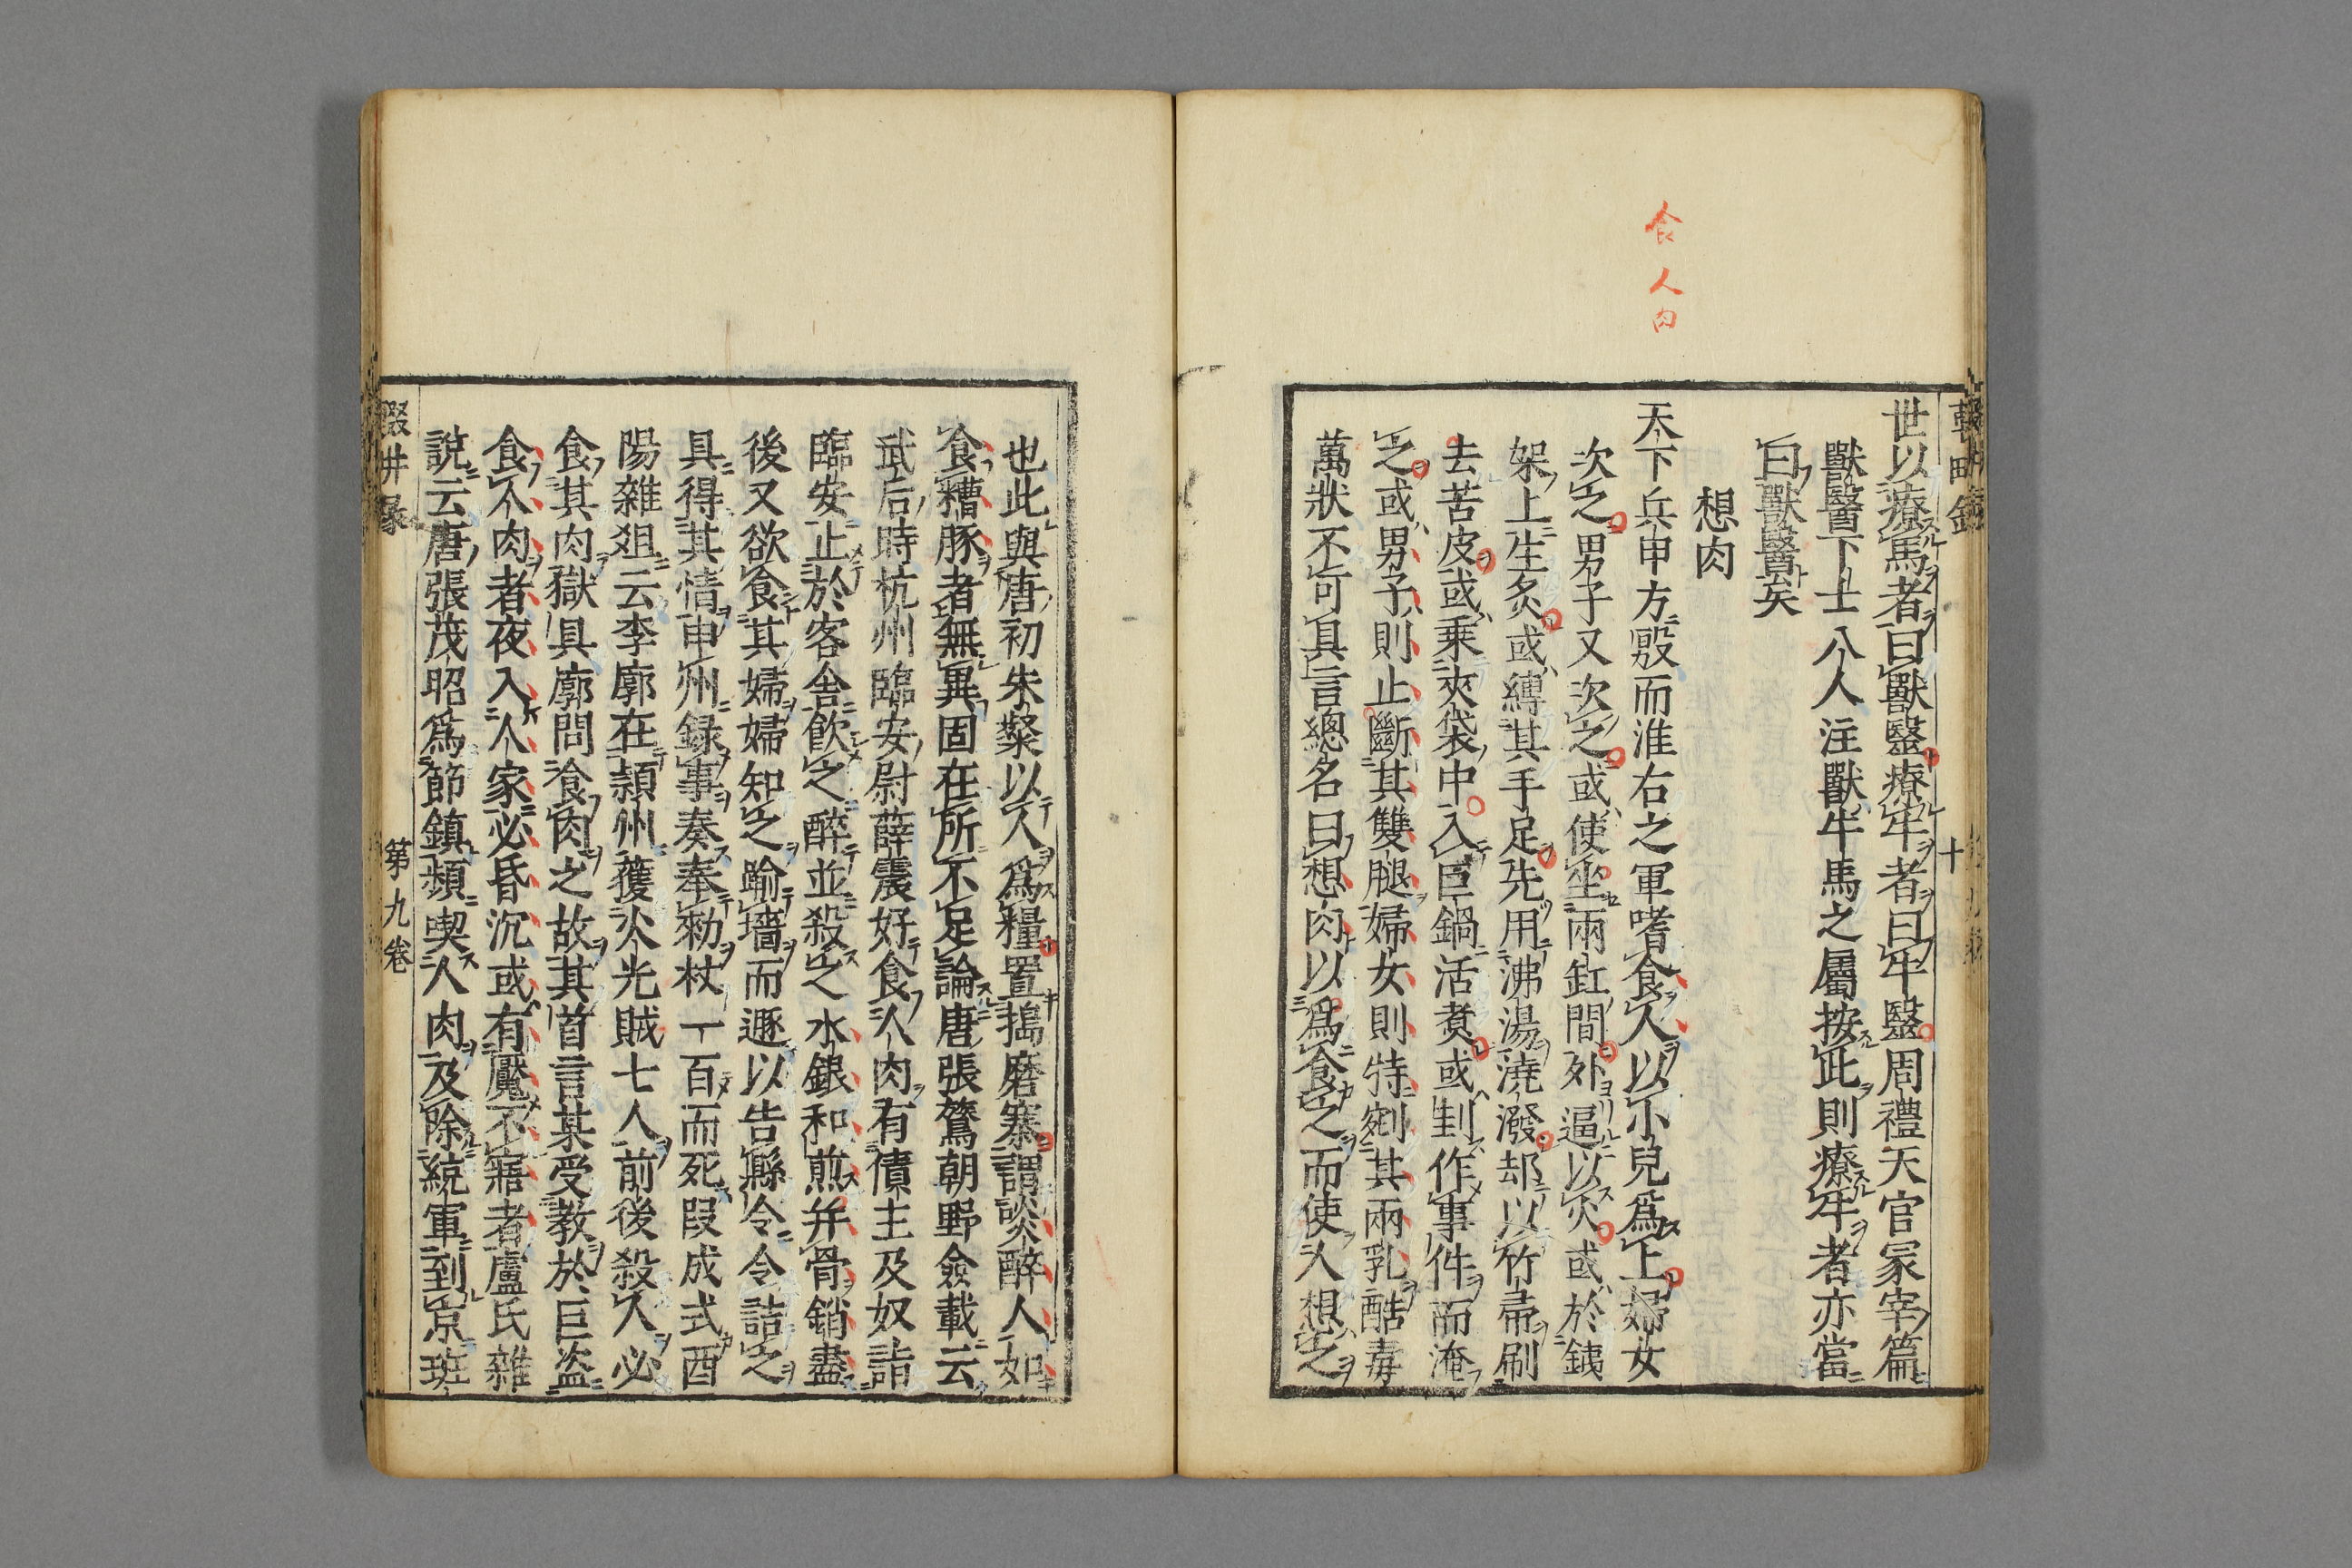 食人肉
世以療馬者曰獸醫療牛者曰牛醫周禮天官冢宰篇
獸醫下士八人注獸牛馬之屬按此則療牛者亦當
曰獸醫矣
想肉
天下兵甲方殷而淮右之軍嗜食人以小兒爲上婦女
次之男子又次之或使坐兩缸間外逼以火或於鐵
架上生炙或縛其手足先用沸湯澆潑却以竹帚刷
去苦皮或乘夾袋中入巨鍋活煮或刲作事件而淹
之或男子則止斷其雙腿婦女則特剜其兩乳酷毒
萬狀不可具言總名曰想肉以爲食之而使人想之
也此與唐初朱粲以人爲糧置搗磨寨謂啖醉人如
食糟豚者無異固在所不足論唐張鷟朝野僉載云
武后時杭州臨安尉薛震好食人肉有債主及奴詣
臨安止於客舍飲之醉並殺之水銀和煎并骨銷盡
後又欲食其婦婦知之踰墻而遯以告縣令令詰之
具得其情申州録事奏奉勅杖一百而死段成式酉
陽雜俎云李廓在頴州獲火光賊七人前後殺人必
食其肉獄具廓問食肉之故其首言某受教於巨盜
食人肉者夜入人家必昏沉或有魘不寤者盧氏雜
說云唐張茂昭爲節鎮頻喫人肉及除統軍到京班
第九卷